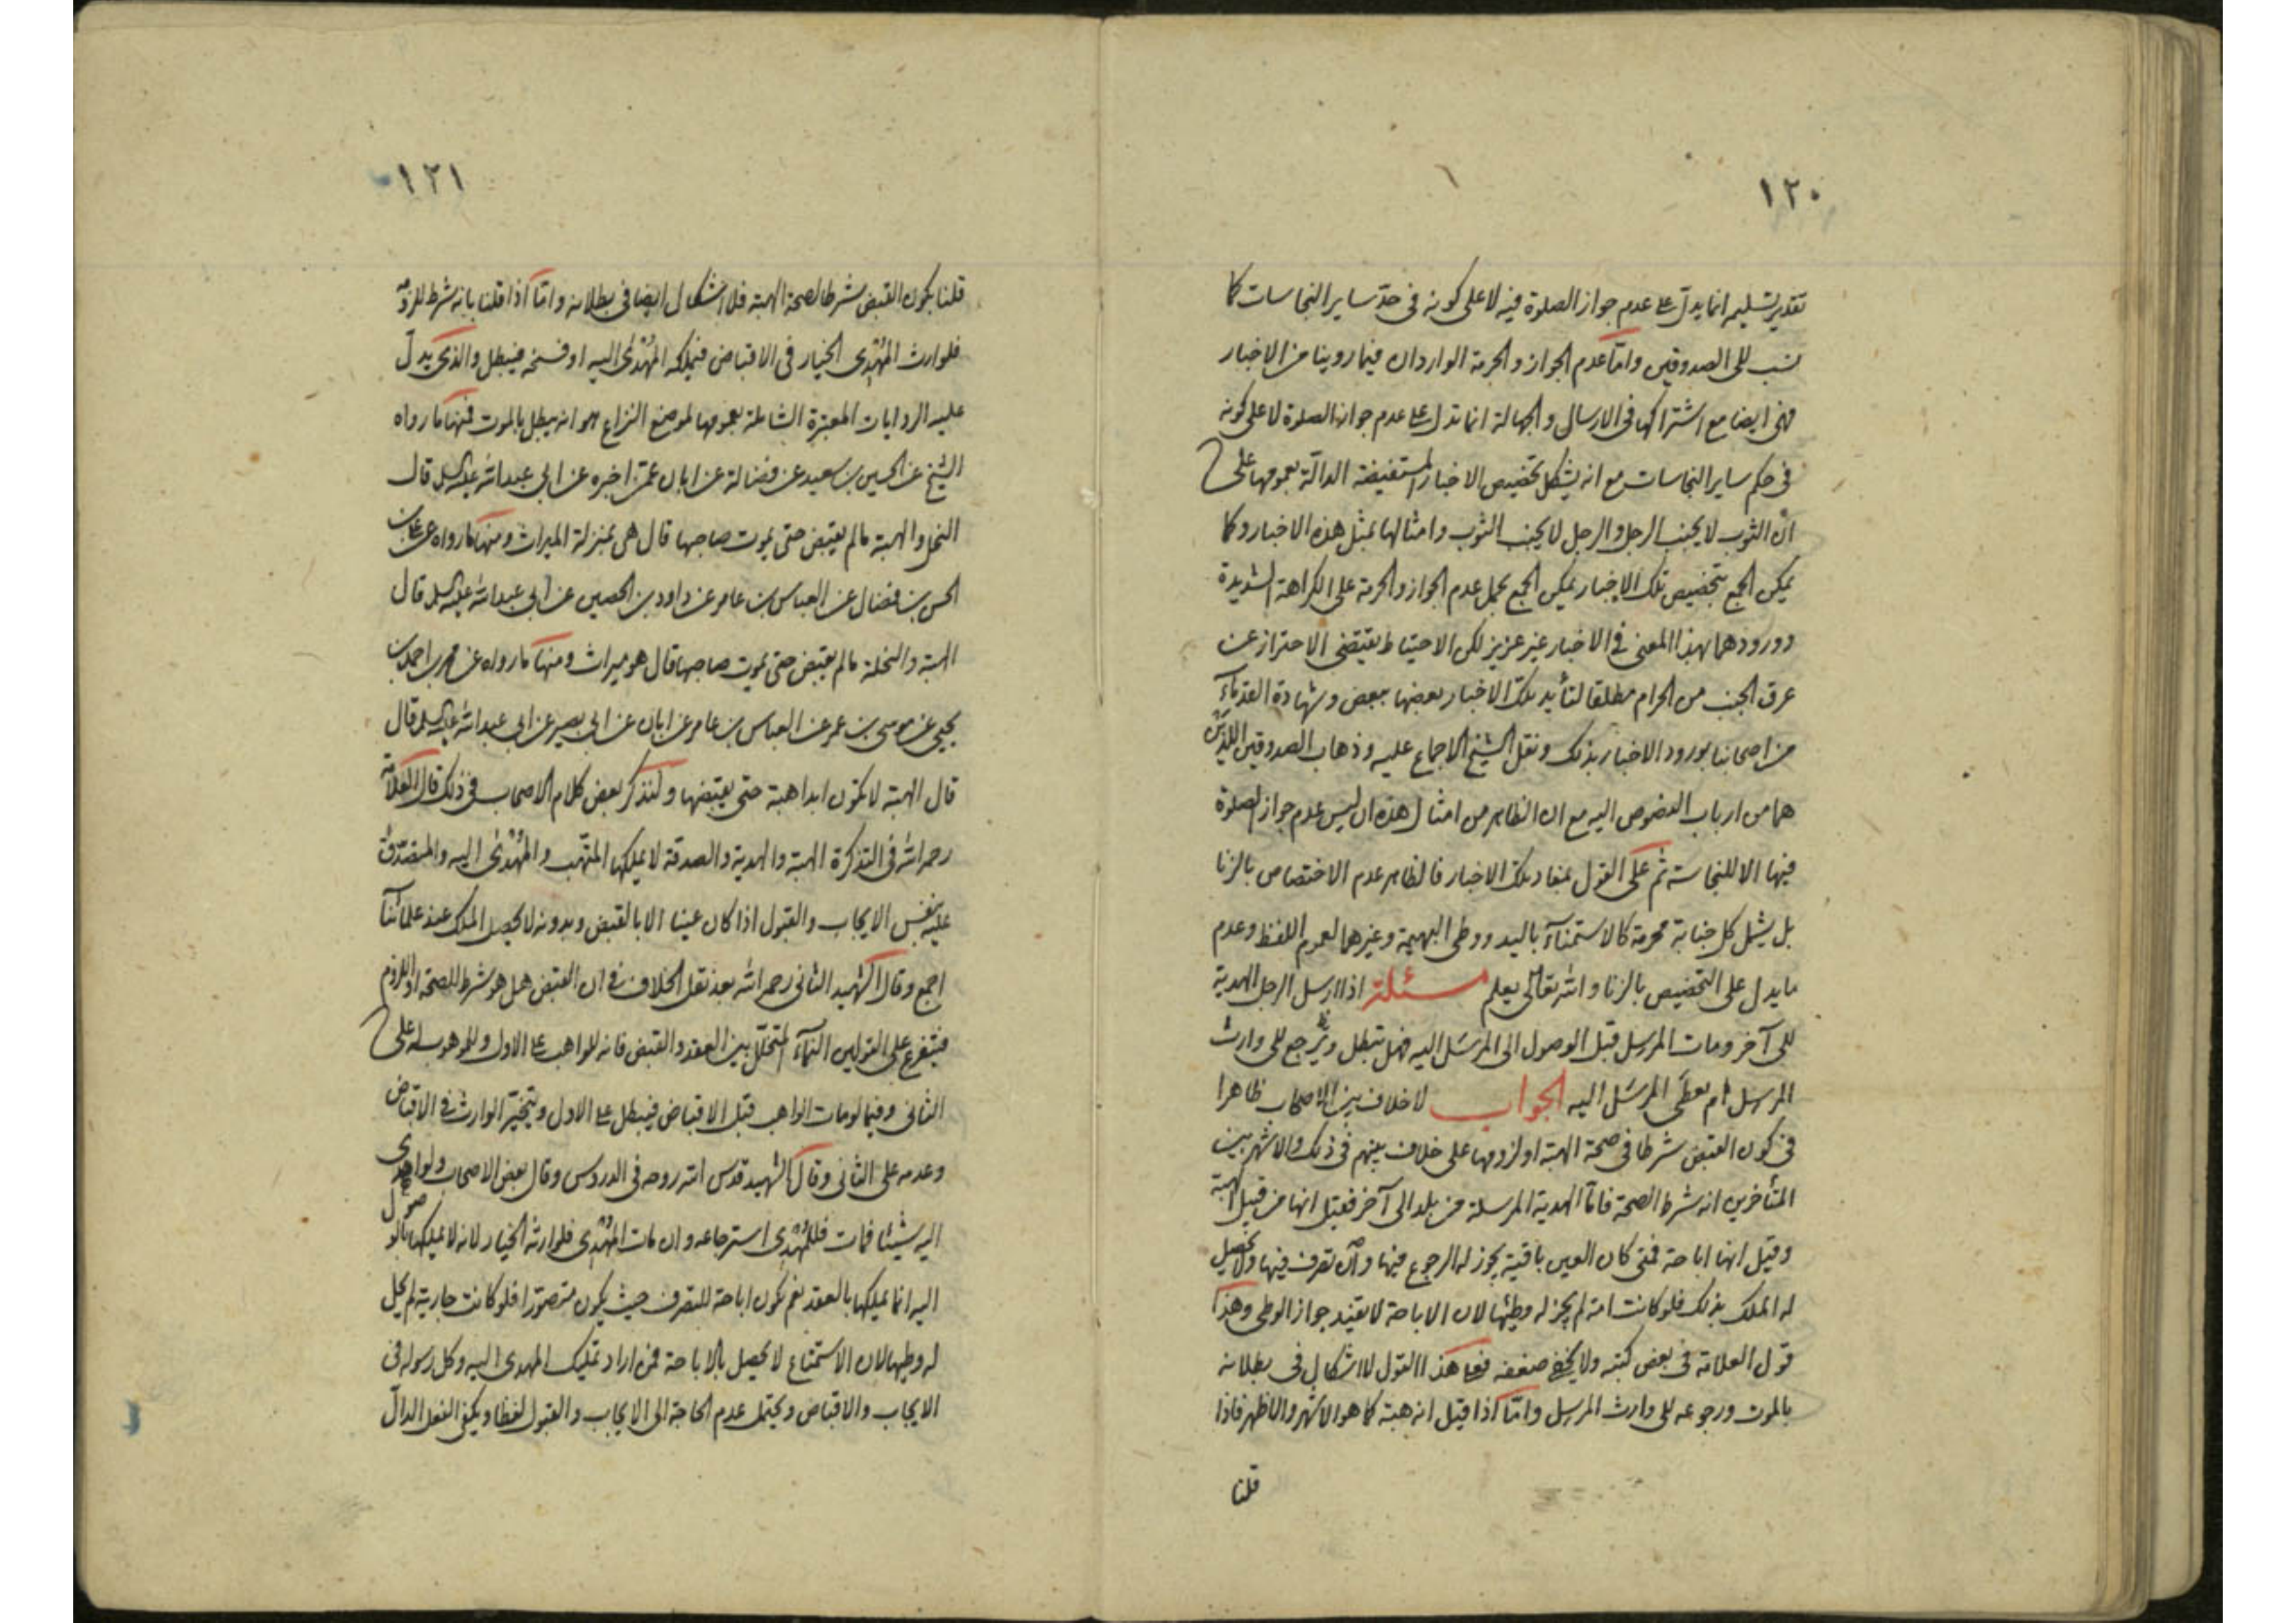 ١٢٠
تقدير تسليم انما يدل على عدم جواز الصلوة فيه لا على كونه فى حد ساير النجاسات كما
نسب الى الصدوقين واما عدم الجواز والحرمة الواردان فيما روينا من الاخبار
فهى ايضا مع اشتراكها فى الارسال والجهالة انما تدل على عدم جواز الصلوة لا على كونه
فى حكم ساير النجاسات مع انه يشكل تخصيص الاخبار المستفيضة الدالة بعمومها على
ان الثوب لا يجنب الرجل والرجل لا يجنب الثوب وامثالها بمثل هذه الاخبار وكما
يمكن الجمع بتخصيص تلك الاخبار يمكن الجمع بحمل عدم الجواز والحرمة على الكراهة الشديدة
وورودهما بهذا المعنى فى الاخبار غير عزيز لكن الاحتياط يقتضى الاحتراز عن
عرق الجنب من الحرام مطلقا لتأيد تلك الاخبار بعضها ببعض وشهادة القدمآء
من اصحابنا بورود الاخبار بذلك ونقل الشيخ الاجماع عليه وذهاب الصدوقين اللذين
هما من ارباب النصوص اليه مع ان الظاهر من امثال هذه ان ليس عدم جواز الصلوة
فيها الا للنجاسة ثم على القول بمفاد تلك الاخبار فالظاهر عدم الاختصاص بالزنا
بل يشمل كل جنابة محرمة كالاستمنآء باليد ووطى البهيمة وغيرهما لعموم اللفظ وعدم
ما يدل على التخصيص بالزنا والله تعالى يعلم مسئلة اذا ارسل الرجل الهدية
الى آخر ومات المرسِل قبل الوصول الى المرسَل اليه فهل تبطل وترجع الى وارث
المرسل ام يعطى المرسَل اليه الجواب لا خلاف بين الاصحاب ظاهرا
فى كون القبض شرطا فى صحة الهبة او لزومها على خلاف بينهم فى ذلك والاشهر بين
المتأخرين انه شرط الصحة فاما الهدية المرسلة من بلد الى آخر فقيل انها من قبيل الهبة
وقيل انها اباحة فمتى كان العين باقية يجوز له الرجوع فيها وان تصرف فيها ولا يحصل
له الملك بذلك فلو كانت امة لم يجز له وطيها لان الاباحة لا يفيد جواز الوطى وهذا
قول العلامة فى بعض كتبه ولا يخفى ضعفه فعلى هذا القول لا اشكال فى بطلانه
بالموت ورجوعه الى وارث المرسل واما اذا قيل انه هبة كما هو الاشهر والاظهر فاذا
قلنا
١٢١
قلنا بكون القبض شرطا لصحة الهبة فلا اشكال ايضا فى بطلانه واما اذا قلنا بانه شرط للزومه
فلوارث المُهْدِى الخيار فى الاقباض فيملكه المُهْدَى اليه او فسخه فيبطل والذى يدل
عليه الروايات المعتبرة الشاملة بعمومها لموضع النزاع هو انه يبطل بالموت فمنها ما رواه
الشيخ عن الحسين بن سعيد عن فضالة عن ابان عمن اخبره عن ابى عبدالله عليه السلم قال
النحل والهبة ما لم يقبض حتى يموت صاحبها قال هى بمنزلة الميراث ومنها ما رواه عن على بن
الحسن بن فضال عن العباس بن عامر عن داود بن الحصين عن ابى عبدالله عليه السلم قال
الهبة والنحلة ما لم يقبض حتى يموت صاحبها قال هو ميراث ومنها ما رواه عن محمد بن احمد بن
يحيى عن موسى بن عمر عن العباس بن عامر عن ابان عن ابى بصير عن ابى عبدالله عليه السلم قال
قال الهبة لا تكون ابدا هبة حتى يقبضها ولنذكر بعض كلام الاصحاب فى ذلك قال العلامة
رحمه الله فى التذكرة الهبة والهدية والصدقة لا يملكها المتهب والمُهْدَى اليه والمتصدق
عليه بنفس الايجاب والقبول اذا كان عينا الا بالقبض وبدونه لا يحصل الملك عند علمائنا
اجمع وقال الشهيد الثانى رحمه الله بعد نقل الخلاف فى ان القبض هل هو شرط للصحة او اللزوم
فيتفرع على القولين النمآء المتخلل بين العقد والقبض فانه للواهب على الاول وللموهوب له على
الثانى وفيما لو مات الواهب قبل الاقباض فيبطل على الاول ويتخير الوارث فى الاقباض
وعدمه على الثانى وقال الشهيد قدس الله روحه فى الدروس وقال بعض الاصحاب ولو اهدى
اليه شيئا فمات فللمُهْدِى استرجاعه وان مات المُهْدِى فلوارثه الخيار لانه لا يملكها بالوصول
اليه انما يملكها بالعقد نعم يكون اباحة للتصرف حيث يكون متصورا فلو كانت جارية لم يحل
له وطيها لان الاستمتاع لا يحصل بالاباحة فمن اراد تمليك المهدى اليه وكل رسوله فى
الايجاب والاقباض ويحتمل عدم الحاجة الى الايجاب والقبول لفظا ويكفى الفعل الدال